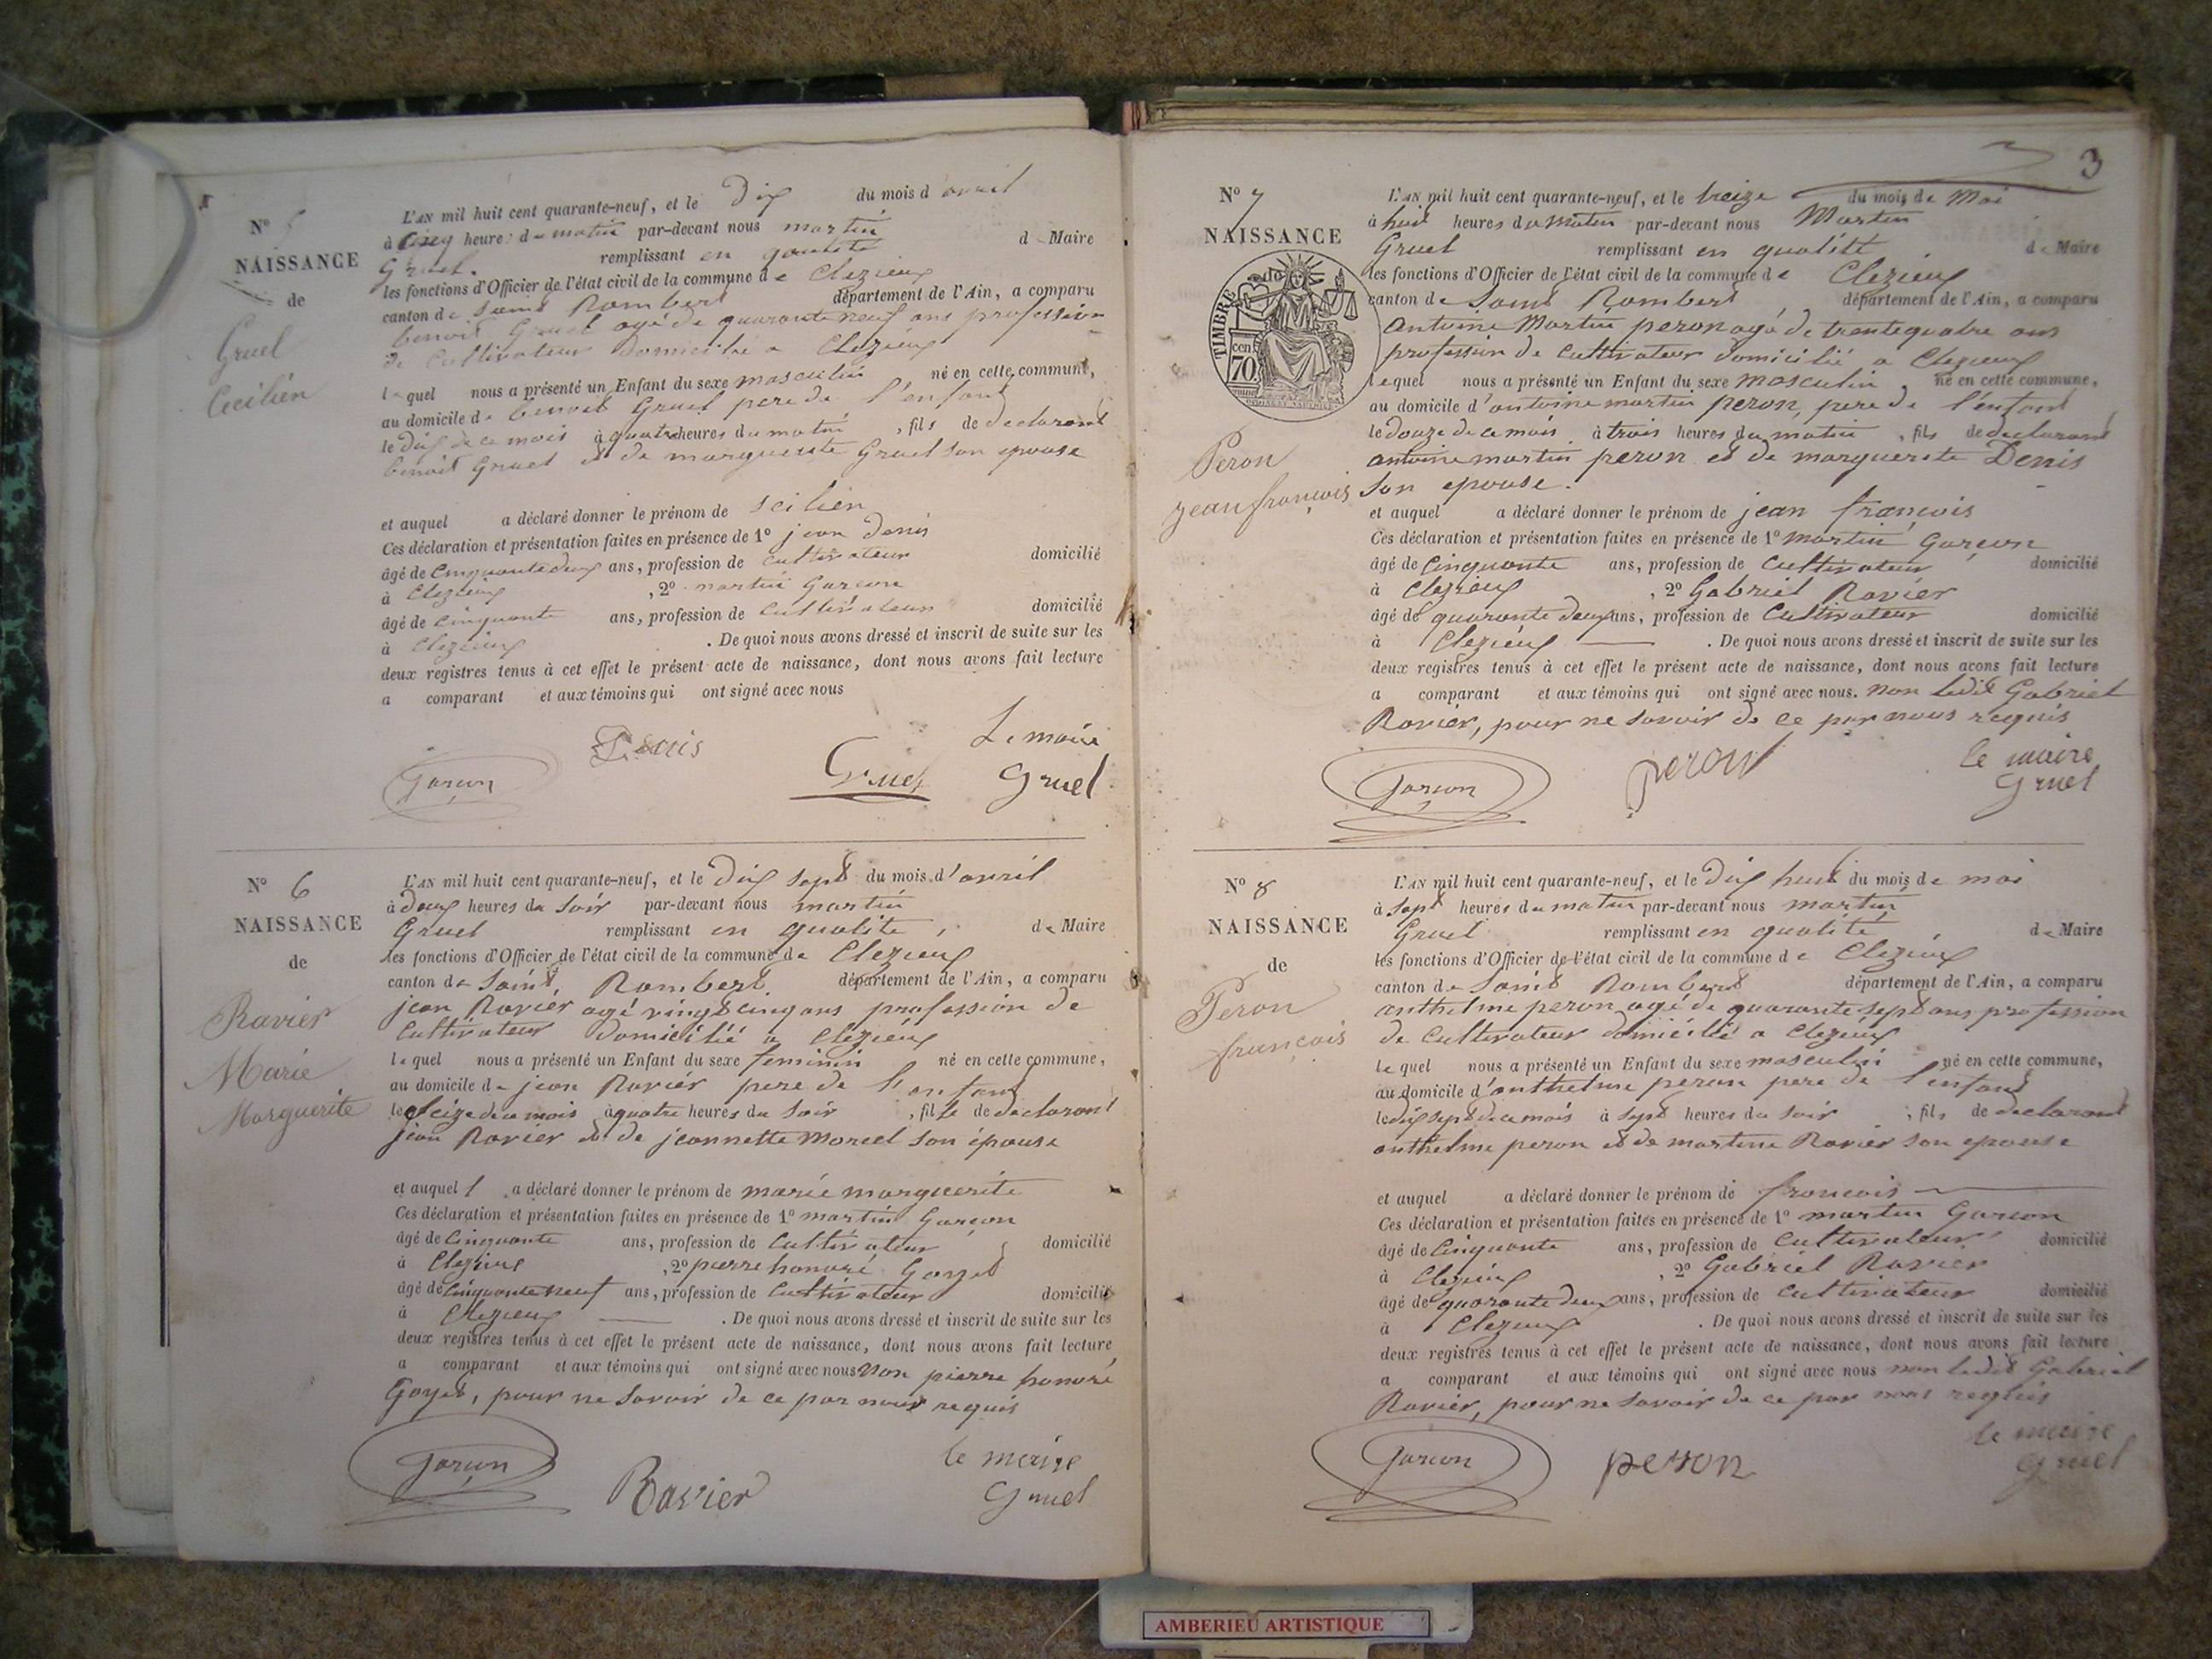 N° 5
NAISSANCE
de
Gruel
Cecilien
L'AN mil huit cent quarante-neuf, et le Dix du mois d'avril
à Cinq heures du matin par-devant nous martin
Gruel. remplissant en qualité de Maire
les fonctions d'Officier de l'état civil de la commune de Clezieux
canton de Saint Rambert département de l'Ain, a comparu
benoit Gruel agé de quarante neuf ans profession
de Cultivateur Domicilié a Clezieux
lequel nous a présenté un Enfant du sexe masculin né en cette commune,
au domicile de benoit Gruel pere de l'enfant
le dix de ce mois à quatre heures du matin, fils de declarant
benoit Gruel et de marguerite Gruel son epouse
et auquel a déclaré donner le prénom de scilien
Ces déclaration et présentation faites en présence de 1° jean Denis
âgé de Cinquante deux ans, profession de cultivateur domicilié
à Clezieux, 2° martin Garcon
âgé de Cinquante ans, profession de Cultivateur domicilié
à Clezieux. De quoi nous avons dressé et inscrit de suite sur les
deux registres tenus à cet effet le présent acte de naissance, dont nous avons fait lecture
a comparant et aux témoins qui ont signé avec nous
Garcon Denis Gruel Le maire
Gruel
N° 6
NAISSANCE
de
Ravier
Marie
Marguerite
L'AN mil huit cent quarante-neuf, et le Dix sept du mois d'avril
à deux heures du Soir par-devant nous martin
Gruel remplissant en qualité, de Maire
les fonctions d'Officier de l'état civil de la commune de Clezieux
canton de Saint Rambert département de l'Ain, a comparu
jean Ravier agé vingt cinq ans profession de
Cultivateur Domicilié a Clézieux
lequel nous a présenté un Enfant du sexe feminin né en cette commune,
au domicile de jean Ravier pere de l'enfant
le seize de ce mois à quatre heures du Soir, fille de declarant
jean Ravier et de jeannette Morcel son épouse
et auquel l a déclaré donner le prénom de marie marguerite
Ces déclaration et présentation faites en présence de 1° martin Garcon
âgé de Cinquante ans, profession de Cultivateur domicilié
à Clezieux, 2° pierre honoré Goyet
âgé de Cinquante neuf ans, profession de Cultivateur domicilié
à Clezieux. De quoi nous avons dressé et inscrit de suite sur les
deux registres tenus à cet effet le présent acte de naissance, dont nous avons fait lecture
a comparant et aux témoins qui ont signé avec nous Non pierre honoré
Goyet, pour ne Savoir de ce par nous requis
Garcon Ravier le maire
Gruel
3
N° 7
NAISSANCE
TIMBRE
cen. 70.
Peron
jean françois
L'AN mil huit cent quarante-neuf, et le treize du mois de Mai
à huit heures du matin par-devant nous Martin
Gruel remplissant en qualité de Maire
les fonctions d'Officier de l'état civil de la commune de Clezieux
canton de Saint Rambert département de l'Ain, a comparu
Antoine Martin peron agé de trente quatre ans
profession de Cultivateur domicilié a Clezieux
lequel nous a présenté un Enfant du sexe masculin, né en cette commune,
au domicile d'antoine martin peron, pere de l'enfant
le douze de ce mois à trois heures du matin, fils de declarant
antoine martin peron et de marguerite Denis
son epouse.
et auquel a déclaré donner le prénom de jean françois
Ces déclaration et présentation faites en présence de 1° martin Garçon
âgé de Cinquante ans, profession de Cultivateur domicilié
à Clezieux, 2° Gabriel Ravier
âgé de quarante deux ans, profession de Cultivateur domicilié
à Clezieux. De quoi nous avons dressé et inscrit de suite sur les
deux registres tenus à cet effet le présent acte de naissance, dont nous avons fait lecture
a comparant et aux témoins qui ont signé avec nous. non ledit Gabriel
Ravier, pour ne Savoir de ce par nous requis
Garcon peron le maire
Gruel
N° 8
NAISSANCE
de
Peron
françois
L'AN mil huit cent quarante-neuf, et le Dix huit du mois de mai
à sept heures du matin par-devant nous martin
Gruel remplissant en qualité de Maire
les fonctions d'Officier de l'état civil de la commune de Clezieux
canton de Saint Rambert département de l'Ain, a comparu
anthelme peron agé de quarante sept ans profession
de Cultivateur domicilié a Clezieux
lequel nous a présenté un Enfant du sexe masculin né en cette commune,
au domicile d'anthelme peron pere de l'enfant
le dix sept de ce mois à sept heures du soir, fils de declarant
anthelme peron et de martine Ravier son epouse
et auquel a déclaré donner le prénom de francois
Ces déclaration et présentation faites en présence de 1° martin Garcon
âgé de Cinquante ans, profession de Cultivateur domicilié
à Clezieux, 2° Gabriel Ravier
âgé de quarante deux ans, profession de cultivateur domicilié
à Clezieux. De quoi nous avons dressé et inscrit de suite sur les
deux registres tenus à cet effet le présent acte de naissance, dont nous avons fait lecture
a comparant et aux témoins qui ont signé avec nous non ledit Gabriel
Ravier, pour ne savoir de ce par nous requis
Garcon peron le maire
Gruel
AMBERIEU ARTISTIQUE